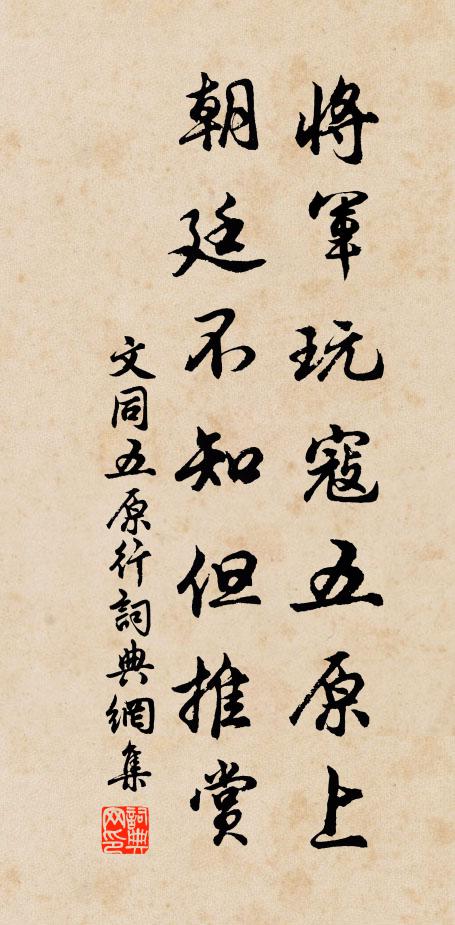 將軍玩寇五原上
朝廷不知但推賞
文同五原行詞典網集
詞典网印